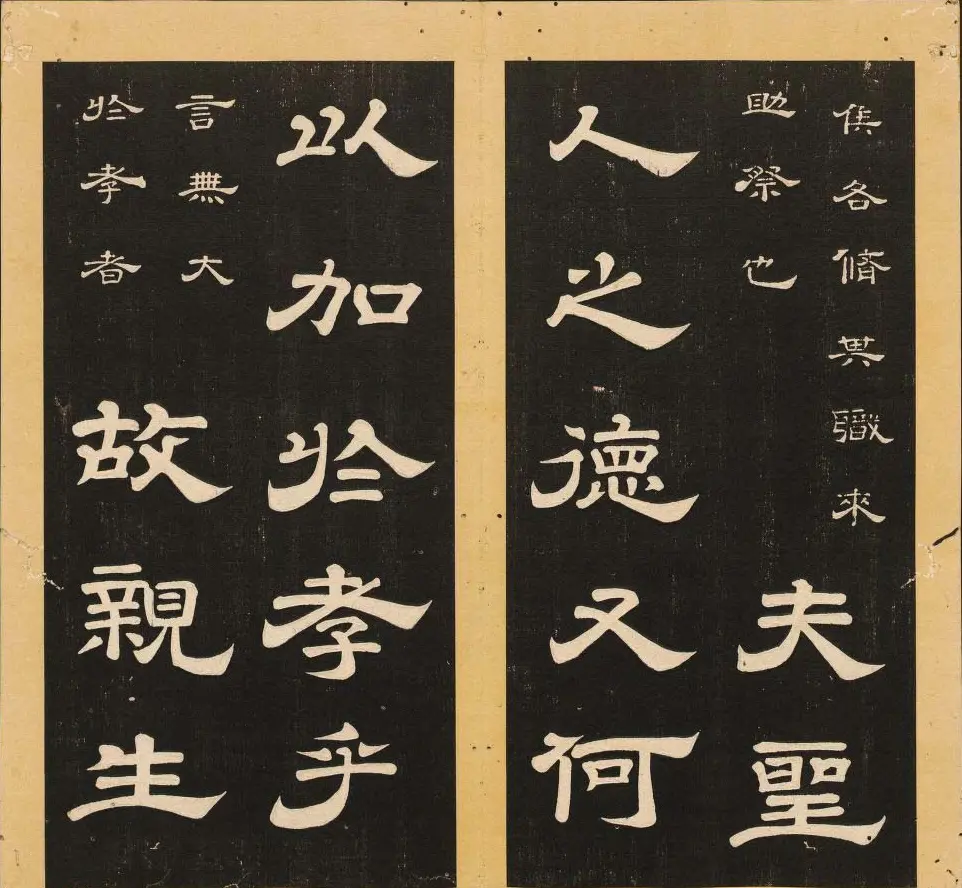 侯各脩其職來
助祭也
夫聖
人之德又何
以加於孝乎
言無大
於孝者
故親生